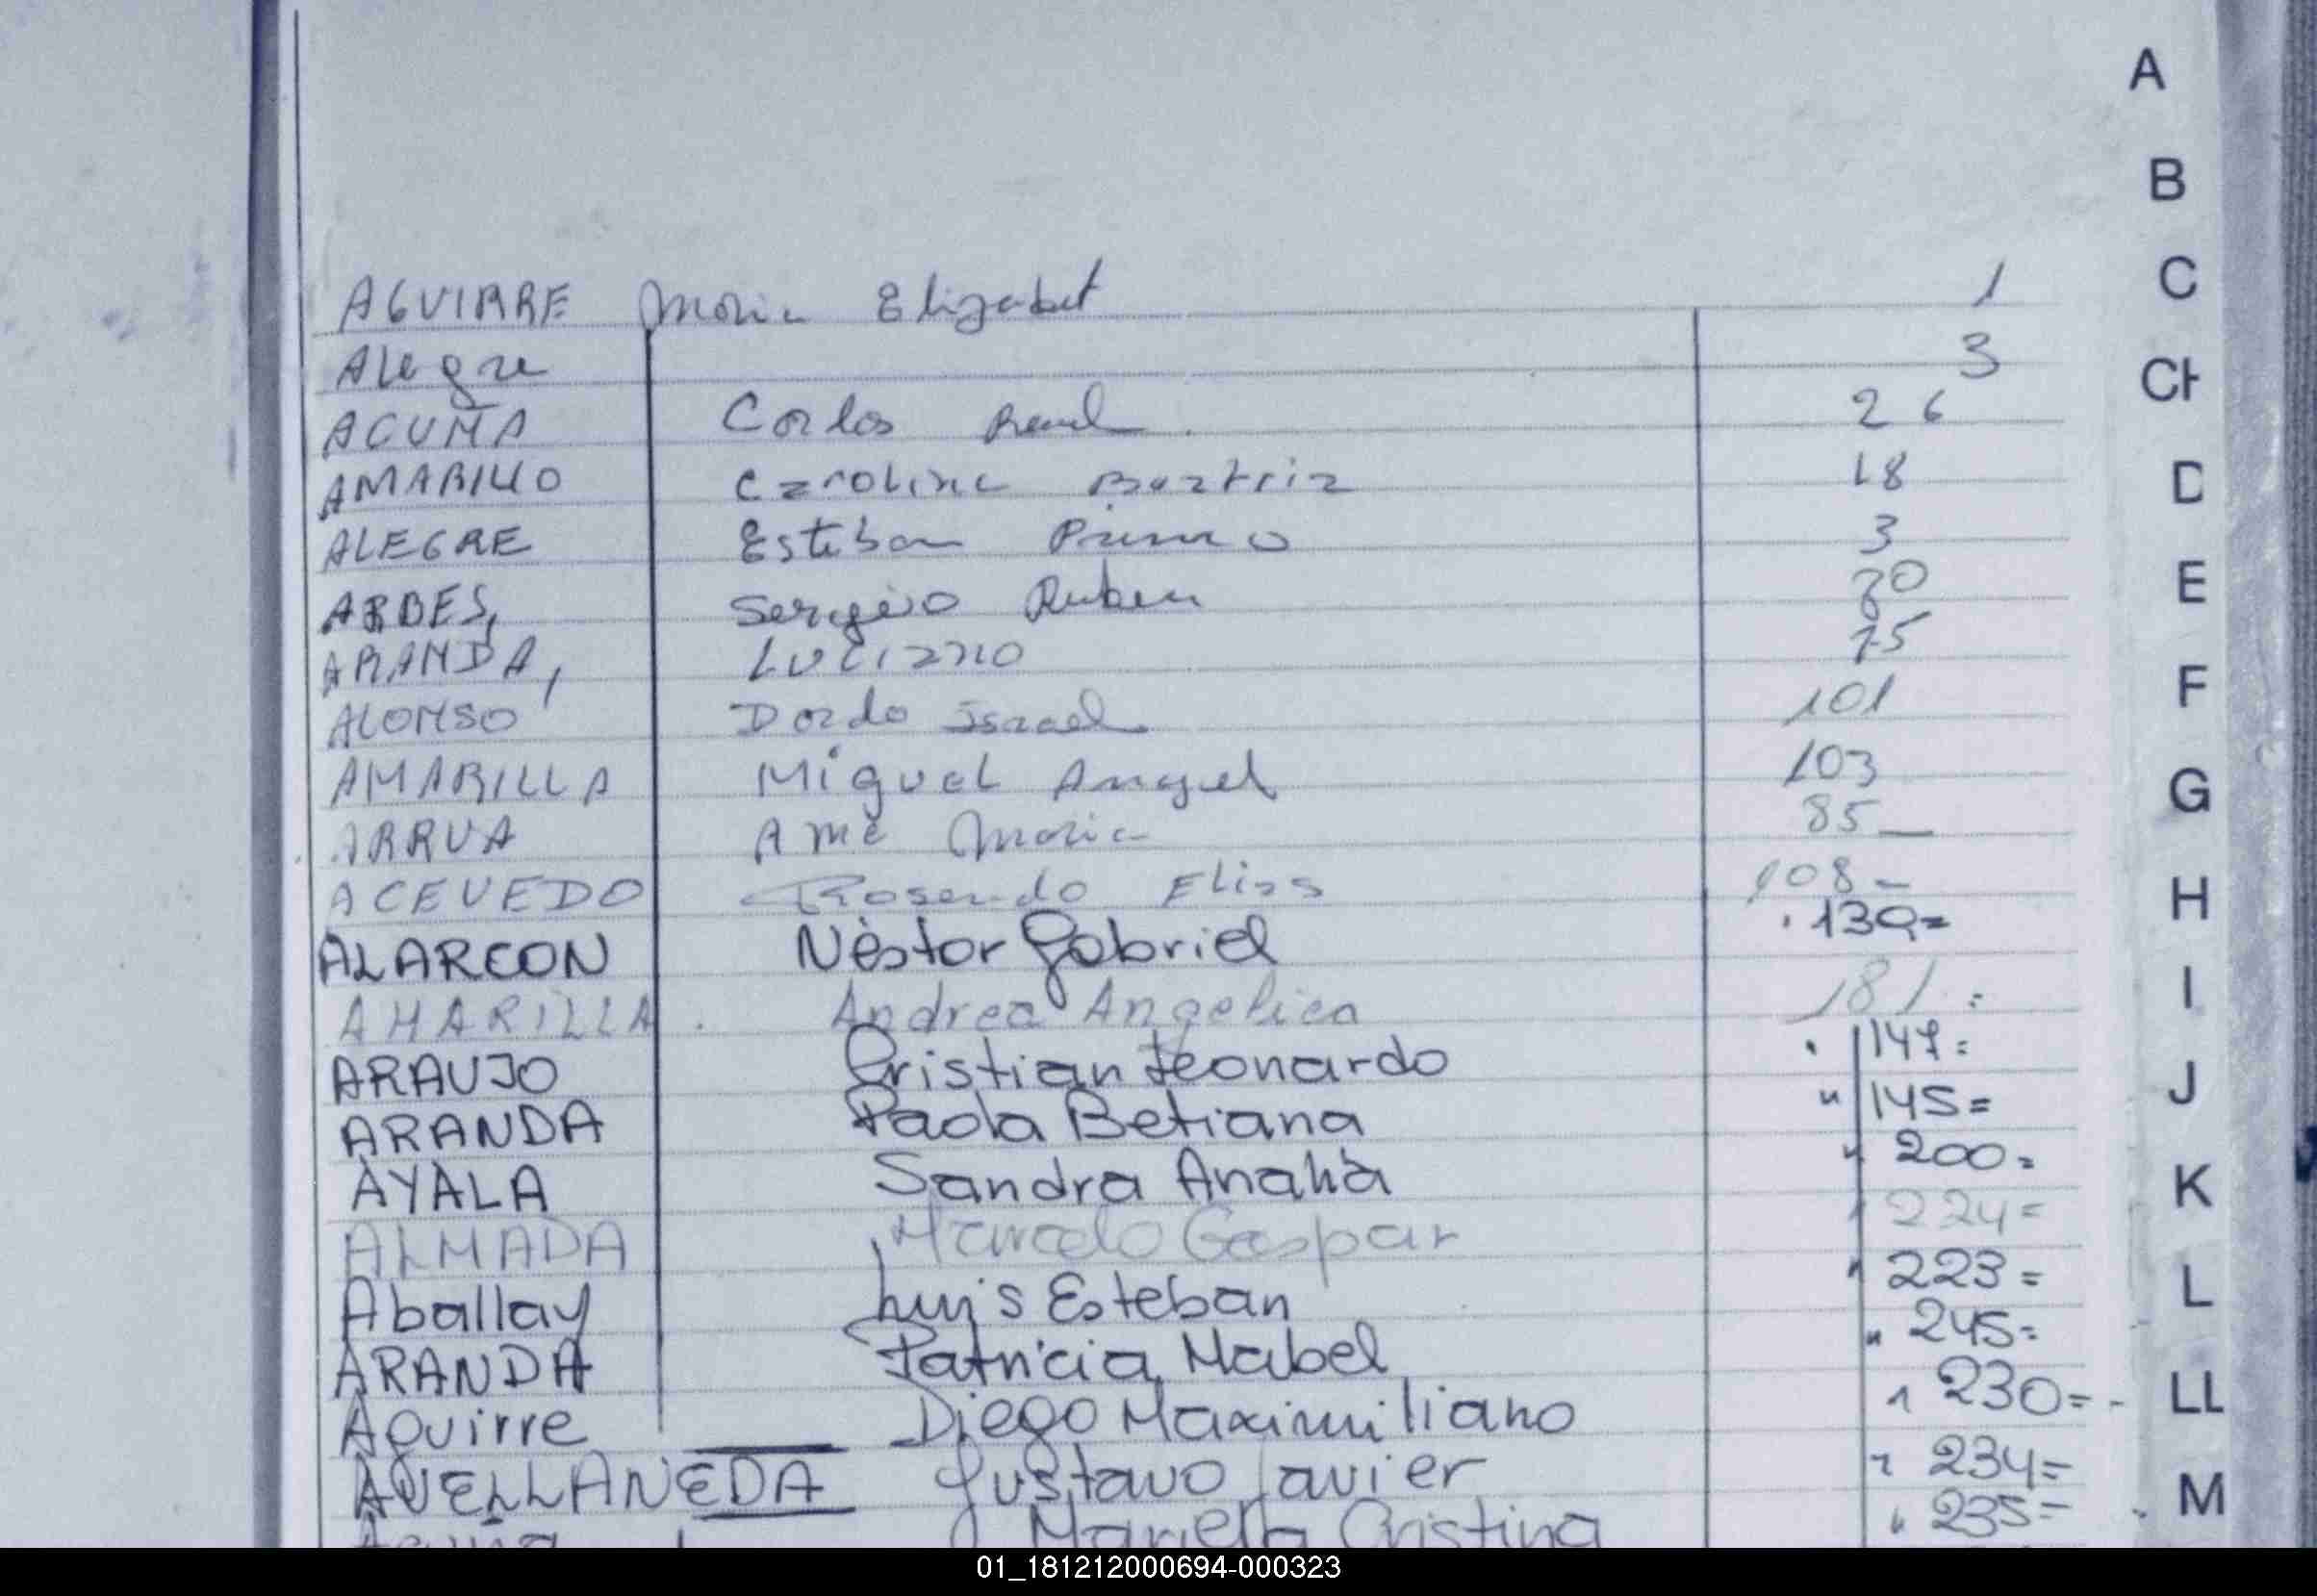 A
B
C
CH
D
E
F
G
H
I
J
K
L
LL
M
AGUIRRE Maria Elizabet 1
Alegre 3
ACUÑA Carlos Raul 26
AMARILLO Carolina Beatriz 18
ALEGRE Esteban Primo 3
ARDES, Sergio Ruben
ARANDA, Luciano 75
ALONSO Dardo Israel 101
AMARILLA Miguel Angel 103
ARRUA Ana Maria 85
ACEVEDO Rosendo Elias 108
ALARCON Nèstor Gabriel 130=
AMARILLA Andrea Angelica 181 =
ARAUJO Cristian Leonardo 147=
ARANDA Paola Betiana " 145=
AYALA Sandra Anahà " 200=
ALMADA Marcelo Gaspar 224=
Aballay Luis Esteban " 223=
ARANDA Patricia Mabel " 245=
Aguirre Diego Maximiliano 230=
AVELLANEDA Gustavo Javier 234=
Acuña Mariella Cristina 235=
01_181212000694-000323